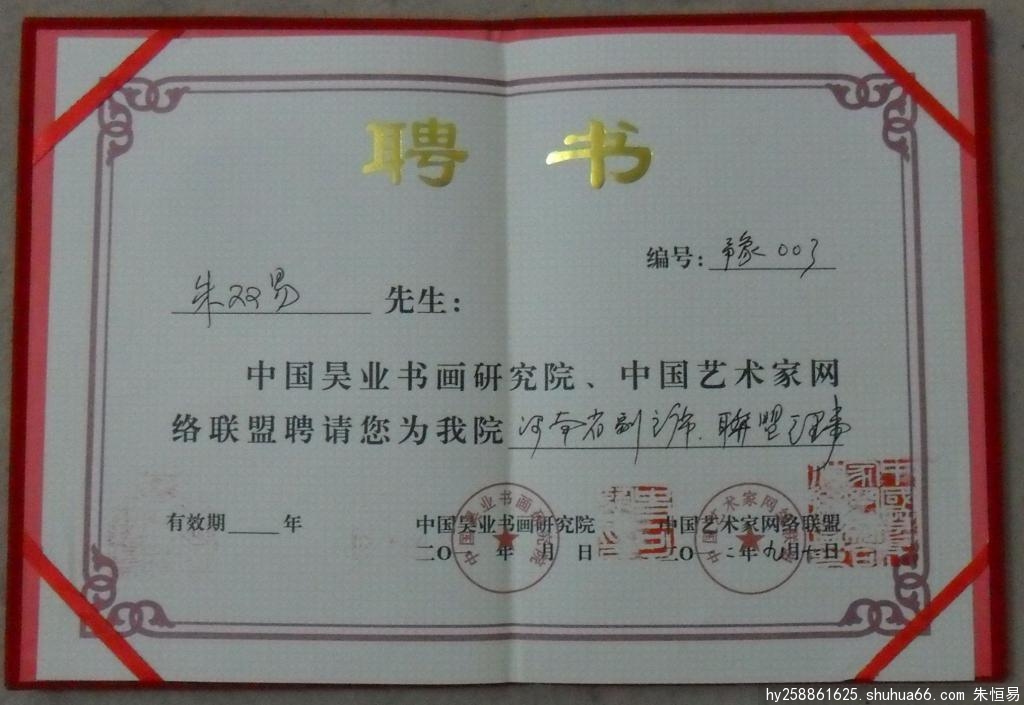 聘书
编号：豫003
朱双易 先生：
中国昊业书画研究院、中国艺术家网
络联盟聘请您为我院河南省副主席.联盟理事
有效期 年 中国昊业书画研究院 中国艺术家网络联盟
二〇一 年 月 日 二〇一二年九月十二日
hy258861625.shuhua66.com 朱恒易